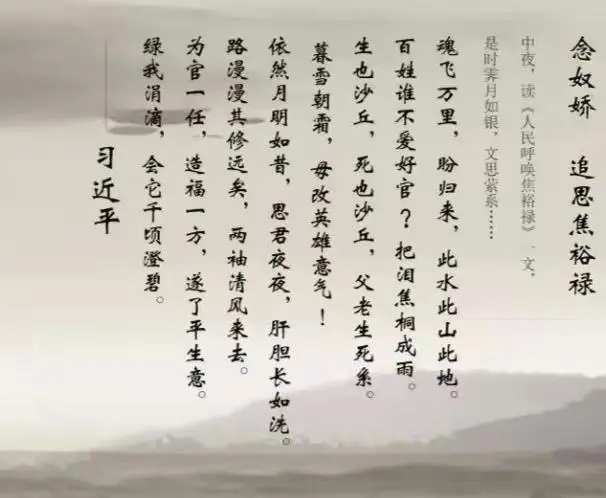 念奴娇 追思焦裕禄
中夜，读《人民呼唤焦裕禄》一文，
是时霁月如银，文思萦系……
魂飞万里，盼归来，此水此山此地。
百姓谁不爱好官？把泪焦桐成雨。
生也沙丘，死也沙丘，父老生死系。
暮雪朝霜，毋改英雄意气！
依然月明如昔，思君夜夜，肝胆长如洗。
路漫漫其修远矣，两袖清风来去。
为官一任，造福一方，遂了平生意。
绿我涓滴，会它千顷澄碧。
习近平